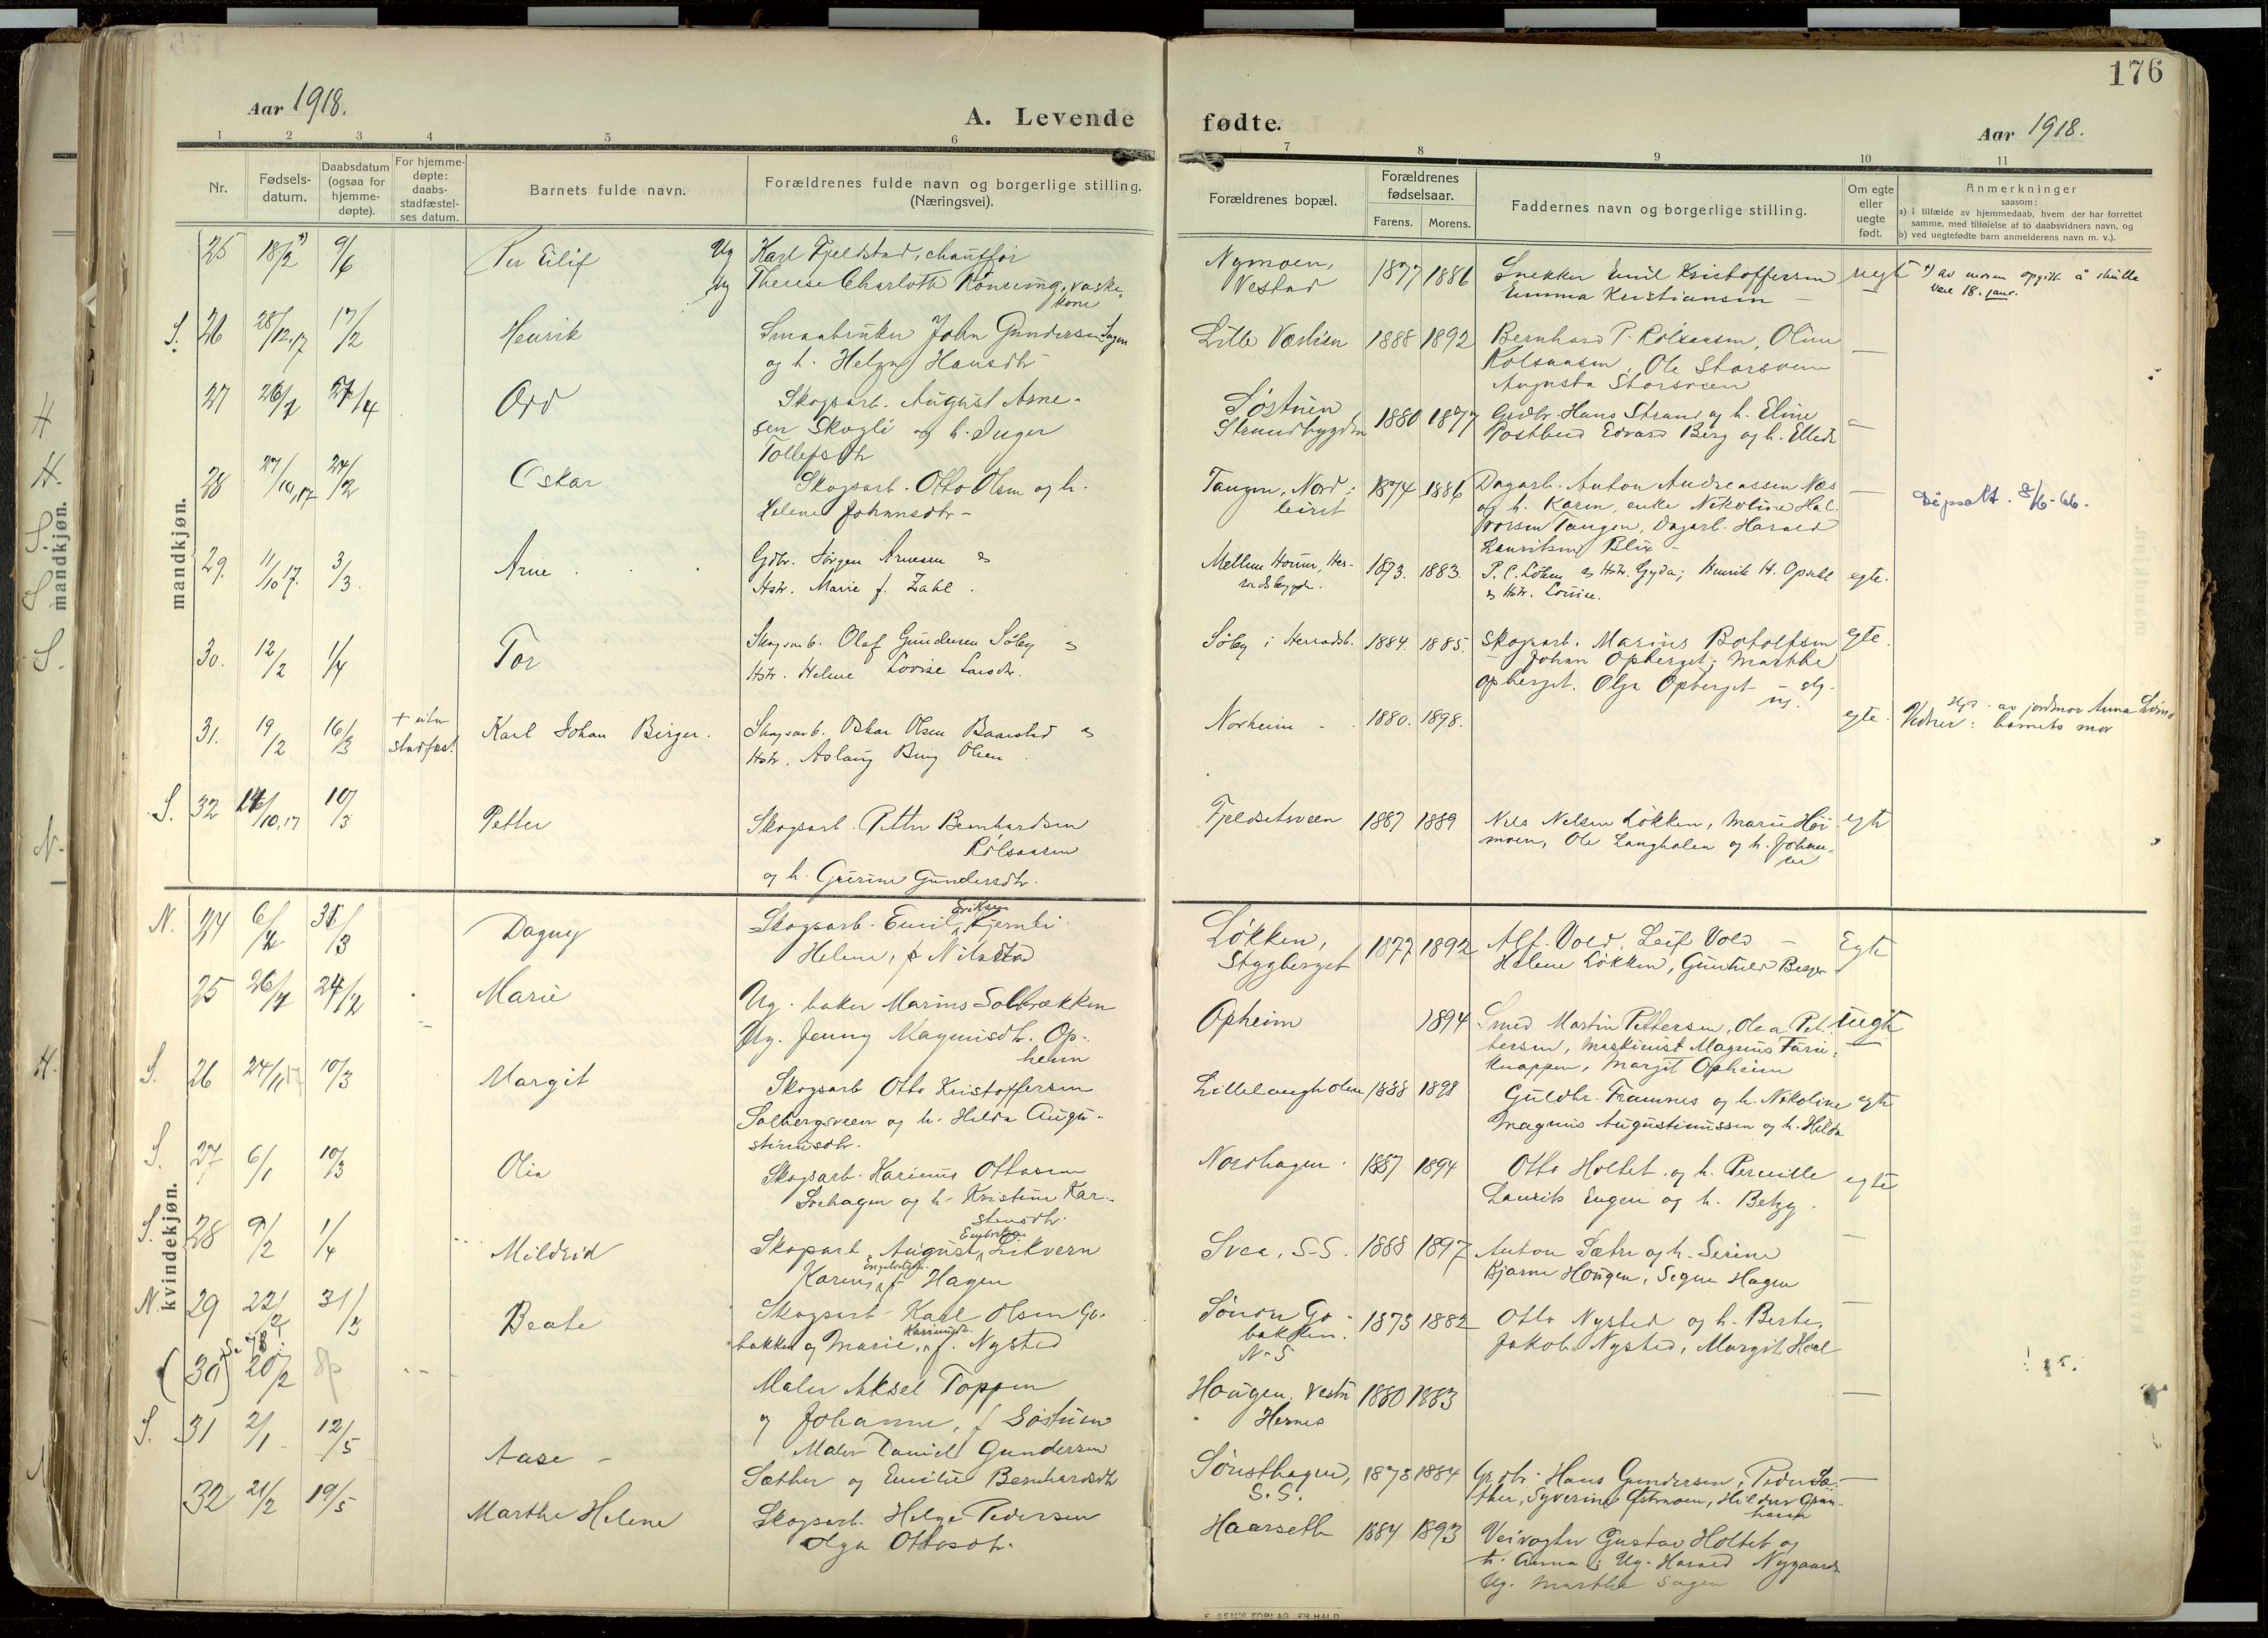 176
Aar 1918.
A. Levende fødte.
Aar 1918.
1 2 3 4 5 6 7 8 9 10 11
Nr.
Fødsels-
datum.
Daabsdatum
(ogsaa for
hjemme-
døpte).
For hjemme-
døpte:
daabs-
stadfæstel-
ses datum.
Barnets fulde navn.
Forældrenes fulde navn og borgerlige stilling.
(Næringsvei).
Forældrenes bopæl.
Forældrenes
fødselsaar.
Farens. Morens.
Faddernes navn og borgerlige stilling.
Om egte
eller
uegte
født.
Anmerkninger
saasom:
a) i tilfælde av hjemmedaab, hvem der har forrettet
samme, med tilføielse af to daabsvidners navn, og
b) ved uegtefødte barn anmelderens navn m. v.).
mandkjøn.
25 18/2 *) 9/6 Per Eilif
Ug Karl Fjeldstad, chauffør
Ug Therese Charlotte Rønning, vaske-
kone
Nymoen,
Vestad
1877 1886
Snekker Emil Kristoffersen
Emma Kristiansen
uegt
*) av moren opgit å skulle
være 18. janr.
S. 26 28/12.17 17/2 Henrik
Smaabruker John Gundersen Sagen
og h. Helga Hansdtr
Lille Værlien 1888 1892
Bernhard P. Rølsaasen, Oline
Rølsaasen, Ole Storsveen
Augusta Storsveen
27 26/1 21/4 Odd
Skogsarb. August Arne-
sen Skogli og h. Inger
Tollefsdtr
Søstuen
Strandbygden
1880 1877
Grdbr. Hans Strand og h. Eline
Postbud Edvard Berg og h.
28 27/10,17 24/2 Oskar
Skogsarb. Otto Olsen og h.
Helene Johansdtr -
Tangen, Nord-
leiret
1874 1886
Dagarb. Anton Andreassen Næs
og h. Karen, enke Nikoline Hal-
vorsen Tangen, Dagarb. Harald
Lauritsen Blix -
Dåpsatt. 8/6-66.
29. 11/10 17. 3/3. Arne
Gdbr. Jørgen Arnesen og
Hstr. Marie f. Zahl.
Mellem Horn, Her-
radsbygd.
1873. 1883.
P. C. Løken og Hstr. Gyda; Henrik H. Opsahl
og Hstr. Louise.
egte.
30. 12/2 1/4 Tor
Skogsarb. Olaf Gundersen Søby og
Hstr. Helene Lovise Larsdtr.
Søby i Herradsb. 1884. 1885.
Skogsarb. Marius Botolfsen
Johan Opberget; Marthe
Opberget. Olga Opberget
egte.
31. 19/2 16/3 + uten
stadfæst.
Karl Johan Birger.
Skogsarb. Oskar Olsen Baarstad og
Hstr. Aslaug Olsen
Norheim - 1880. 1898.
egte.
av jordmor Anna
Vidner: barnets mor
S. 32 14/10,17 10/3 Petter
Skogsarb. Petter Bernhardsen
Rølsaasen
og h. Gurine Gundersdtr.
Fjeldsetsveen 1887 1889
Nils Nilsen Løkken, Marie Høi-
moen, Ole Langholen og h. Johan-
ne
egte
kvindekjøn.
N. 24 6/2 31/3 Dagny
Skogsarb. Emil Eriksen Kjernli
Helene, f Nilsstad
Løkken,
Stygberget
1877 1892
Alf Vold, Leif Vold -
Helene Løkken, Gunhild Berger
Egte
25 26/1 24/2 Marie
Ug. baker Marius Solbrækken
Ug. Jenny Magnusdtr. Op-
heim
Opheim 1894
Smed Martin Pettersen, Olea Pet-
tersen, maskinist Magnus Furu-
knappen, Margit Opheim
uegte
S. 26 24/11 17 10/3 Margit
Skogsarb Otto Kristoffersen
Solbergsveen og h. Hilda Augu-
stinusdtr.
Lillelangholen 1888 1898
Guldbr. Framnes og h. Nikoline
Magnus Augustinussen og h. Hilda
egte
S. 27 6/1 10/3 Olia
Skogsarb. Karinus Ottosen
Sørhagen og h. Kristine Kar-
stensdtr.
Nordhagen. 1887 1894
Otto Holtet og h. Pernille
Laurits Engen og h. Betzy.
egte
S. 28 9/2 1/4 Mildrid
Skogsarb. August Embretsen Likvern
Karen Engebretsen f. Hagen
Svea, S-S. 1888 1897
Anton Sætre og h. Serine
Bjarne Hougen, Signe Hagen
N. 29 22/2 31/3 Beate
Skogsarb Karl Olsen Go-
bakken og Marie, Karinusdtr. f. Nysted
Søndre Go-
bakken.
N-S
1873 1882
Otto Nysted og h. Berte,
Jakob Nysted, Margit Hoel
(30) 20/2
Maler Aksel Toppen
og Johanne, f Søstuen
Hougen, Vestre
Hernes
1880 1883
S. 31 2/1 12/5 Aase -
Maler Daniel Gundersen
Sæther og Emilie Bernhardsdtr
Sørsthagen,
S.S.
1873 1884
Grdbr. Hans Gundersen, Peder Sæ-
ther, Syverine Østmoen, Hildur Gran-
32 21/2 19/5 Marthe Helene
Skogsarb. Helge Pedersen
Olga Ottosdtr.
Haarseth 1884 1893
Veivogter Gustav Holtet og
h. Anna; Ug. Harald Nygaard
Ug. Marthe Sagen